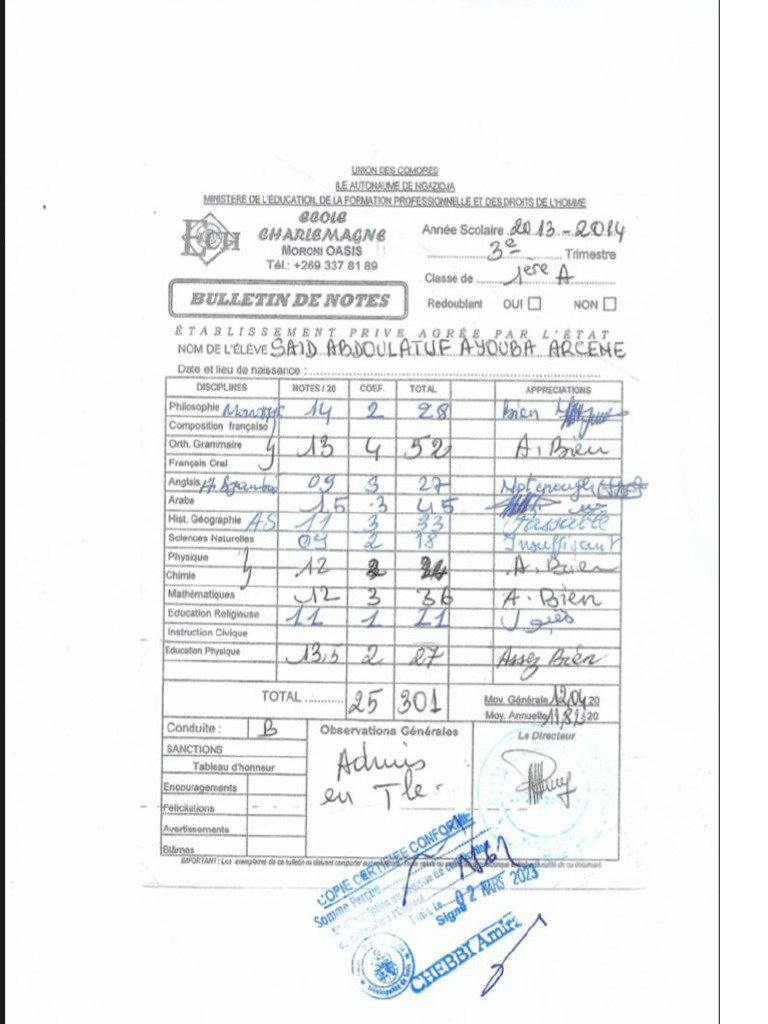 UNION DES COMORES
ILE AUTONAUME DE NGAZIDJA
MINISTERE DE L'ÉDUCATION, DE LA FORMATION PROFESSIONNELLE ET DES DROITS DE L'HOMME
ECOLE
CHARLEMAGNE
MORONI OASIS
Tél.: +269 337 81 89
Année Scolaire 2013-2014
3e Trimestre
Classe de 1ere A
BULLETIN DE NOTES
Redoublant OUI NON
ÉTABLISSEMENT PRIVE AGRÉE PAR L'ÉTAT
NOM DE L'ÉLÈVE SAID ABDOULATUF AYOUBA ARCENE
Date et lieu de naissance :
DISCIPLINES NOTES / 20 COEF. TOTAL APPRECIATIONS
Philosophie 14 2 28 Bien
Composition française
Orth. Grammaire 13 4 52 A. Bien
Français Oral
Anglais 09 3 27 Not enough
Arabe 15 3 45
Hist. Géographie A.S 11 3 33 Passable
Sciences Naturelles 09 2 18 Insuffisant
Physique
Chimie 12 2 24 A. Bien
Mathématiques 12 3 36 A. Bien
Education Religieuse 11 1 11
Instruction Civique
Education Physique 13,5 2 27 Assez Bien
TOTAL 25 301 Moy. Générale 12,04 20
Moy. Annuelle 11,82 20
Conduite : B Observations Générales Le Directeur
SANCTIONS
Tableau d'honneur
Encouragements
Félicitations
Avertissements
Blâmes
Admis
en Tle
IMPORTANT : Les exemplaires de ce bulletin
COPIE CERTIFIÉE CONFORME
Somme Perçue
02 MARS 2023
Signé
CHEBBI Amira